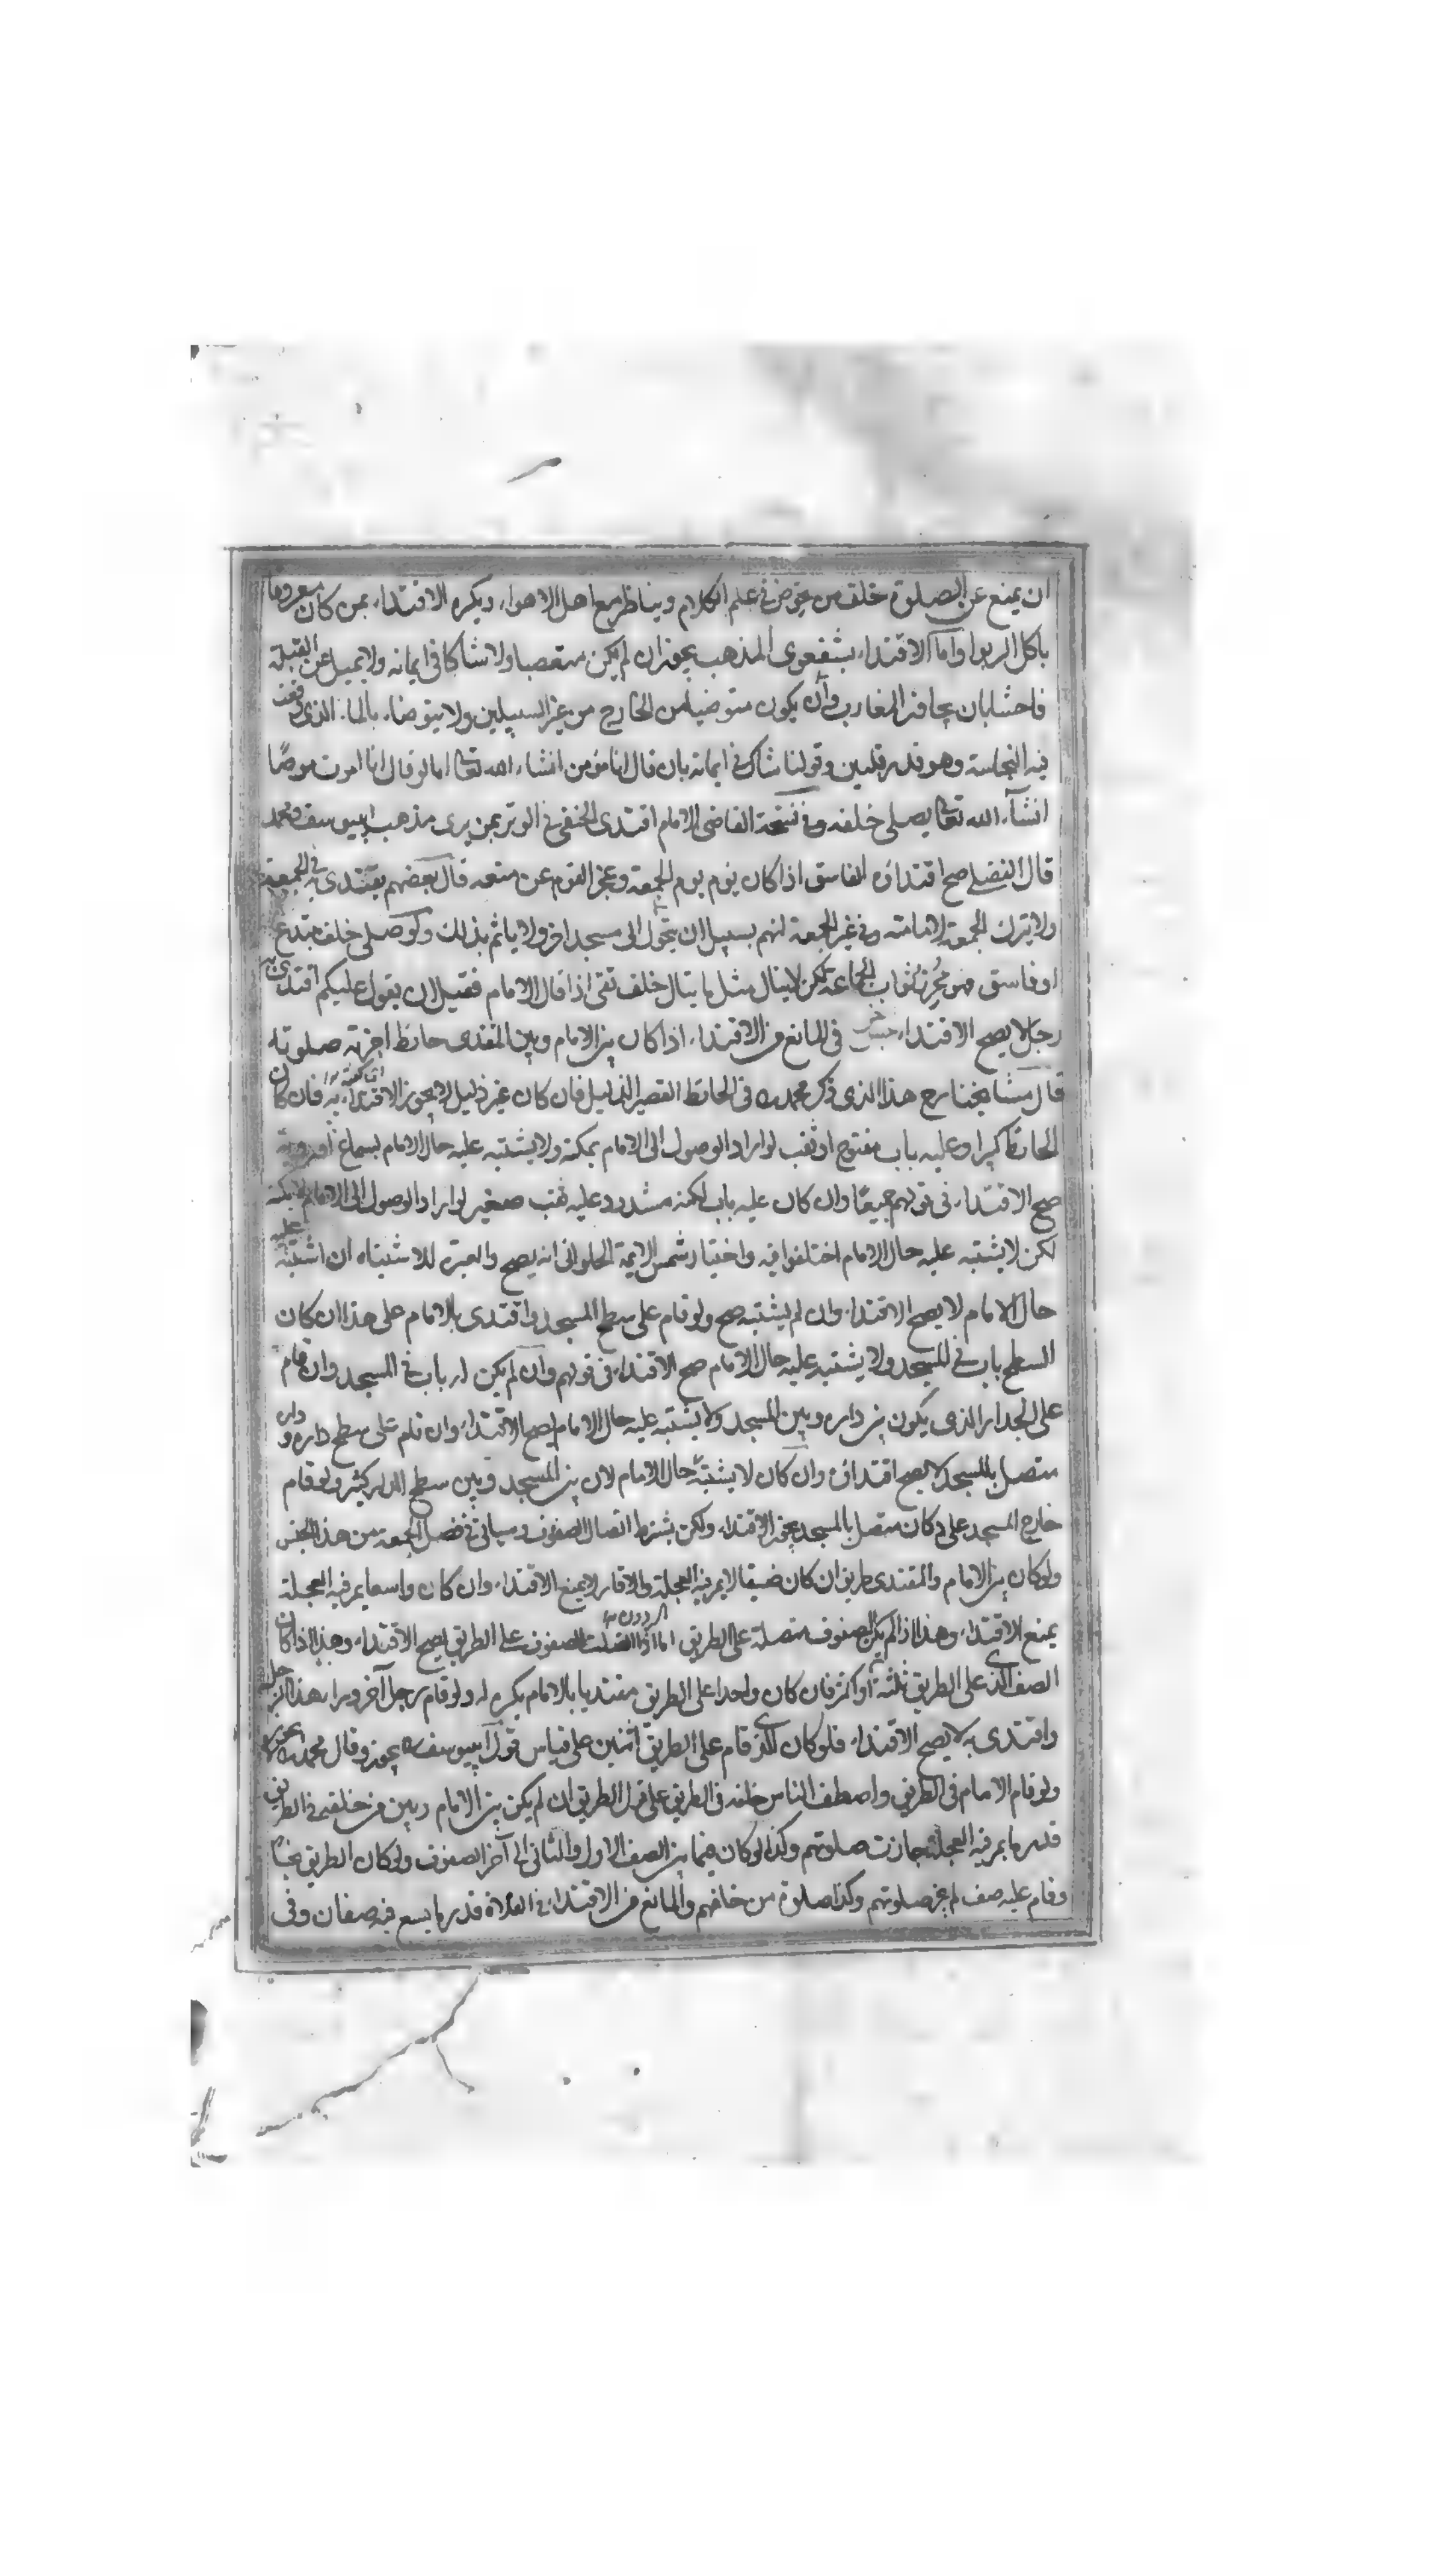 ان يمنع عن الصلوة خلف من يخوض في علم الكلام ويناظر مع اهل الاهواء ويكره الاقتداء بمن كان معروفا
باكل الربوا واما الاقتداء بشفعوى المذهب يجوز ان لم يكن متعصبا ولا شاكا في ايمانه ولا يميل عن القبلة
فاحشا بان يجافز المغارب وان يكون متوضيا من الخارج من غير السبيلين ولا يتوضاء بالماء الذى وقعت
فيه النجاسة وهو قدر قلتين وقولنا شاك في ايمانه بان قال انا مؤمن انشاء الله تعا اما لو قال انا اموت مومنًا
انشآء الله تعا يصلى خلفه وفي القاضى الامام اقتدى الحنفى في الوتر بمن يرى مذهب ابييوسف ومحمد
قال الفضلي صح اقتداؤه الفاسق اذا كان يؤم يوم الجمعة وعجز القوم عن منعه قال بعضهم يقتدى به في الجمعة
ولا يترك الجمعة لامامته وفي غير الجمعة انهم بسبيل ان يتحول الى مسجد اخر ولا ياثم بذلك ولو صلى خلف مبتدع
او فاسق فهو محرز ثواب الجماعة لكن لا ينال مثل ما ينال خلف تقى اذا قال الامام فقيل ان يقول عليكم اقتدى به
رجل لا يصح الاقتداء جنس اخر في المانع من الاقتداء اذا كان بين الامام وبين المقتدى حائط اجزته صلوته
قال مشايخنا رح هذا الذى ذكر محمد في الحائط القصير الذليل فان كان غير ذليل لا يجوز الاقتداء به فان كان
الحائط كبيرا وعليه باب مفتوح او ثقب لو اراد الوصول الى الامام يمكنه ولا يشتبه عليه حال الامام بسماع او روية
صح الاقتداء في قولهم جميعًا وان كان عليه باب لكنه مشدود عليه ثقب صغير لو اراد الوصول الى الامام لا يمكنه
لكن لا يشتبه عليه حال الامام اختلفوا فيه واختيار شمس الايمة الحلوانى انه يصح والعبرة للاشتباه ان اشتبه عليه
حال الامام لا يصح الاقتداء وان لم يشتبه صح ولو قام على سطح المسجد واقتدى بالامام على هذا ان كان
السطح باب في المسجد ولا يشتبه عليه حال الامام صح الاقتداء في قولهم وان لم يكن له باب في المسجد وان قام
على الجدار الذى يكون بين داره وبين المسجد ولا يشتبه عليه حال الامام يصح الاقتداء وان قام على سطح داره وداره
متصل بالمسجد لا يصح اقتداؤه وان كان لا يشتبه حال الامام لان بين المسجد وبين سطح الدار كثير ولو قام
خارج المسجد على دكان متصل بالمسجد يجوز الاقتداء ولكن بشرط اتصال الصفوف وسياتى في فصل الجمعة من هذا الجنس
ولو كان بين الامام والمقتدى طريق ان كان ضيقا لا يمر فيه العجلة والاوقار لا يمنع الاقتداء وان كان واسعا يمر فيه العجلة
يمنع الاقتداء وهذا اذا لم يكن الصفوف متصلة على الطريق اما اذا اتصلت الصفوف على الطريق يصح الاقتداء وهذا اذا كان
الصف الذى على الطريق ثلثة او اكثر فان كان واحدا على الطريق مقتديا بالامام يكره له ولو قام رجل آخر وراء هذا الرجل
واقتدى به لا يصح الاقتداء فلو كان الذى قام على الطريق اثنين على قياس قول ابييوسف يجوز وقال محمد لا يجوز
ولو قام الامام في الطريق واصطف الناس خلفه في الطريق على قدر الطريق ان لم يكن بين الامام وبين من خلفه في الطريق
قدر ما يمر فيه العجلة جازت صلوتهم وكذا لو كان فيما بين الصف الاول والثانى الى آخر الصفوف ولو كان الطريق نجسًا
وقام عليه صف لم يجز صلوتهم وكذا صلوة من خلفهم والمانع من الاقتداء في الفلاة قدر ما يسع فيه صفان وفي